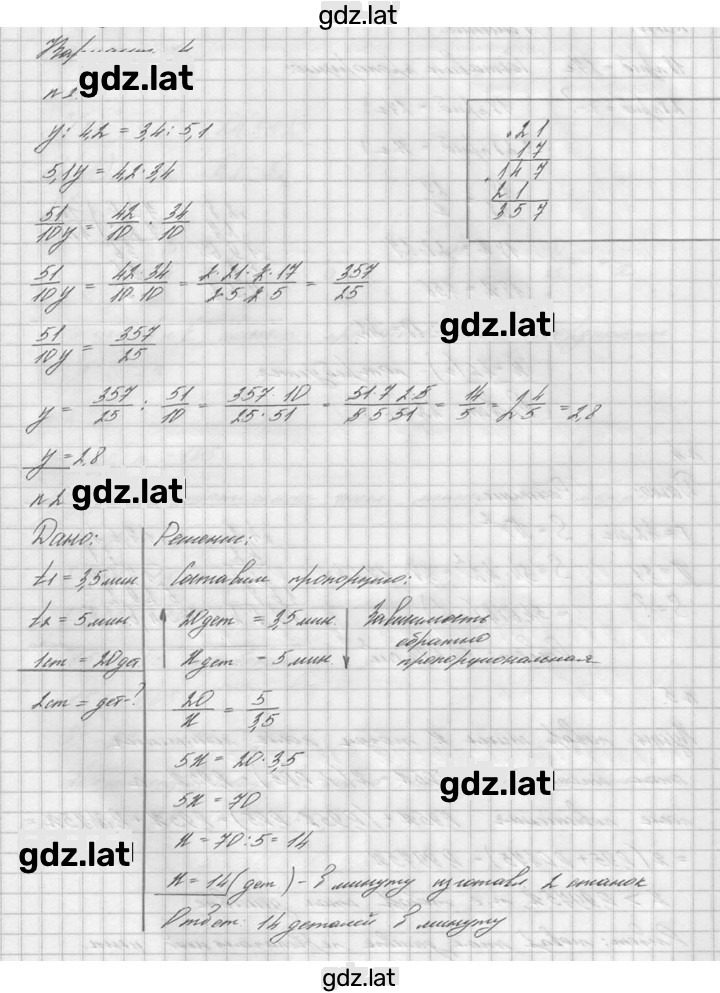 gdz.lat
Вариант 4
gdz.lat
n 1
y : 4,2 = 3,4 : 5,1
5,1y = 4,2 · 3,4
51/10 y = 42/10 · 34/10
51/10 y = 42·34/10·10 = 2·21·2·17/2·5·2·5 = 357/25
51/10 y = 357/25
y = 357/25 : 51/10 = 357·10/25·51 = 51·7·2·5/5·5·51 = 14/5 = 2 4/5 = 2,8
y = 2,8
21
17
147
21
357
gdz.lat
n 2
gdz.lat
Дано:
t1 = 3,5 мин
t2 = 5 мин
1ст = 20дет
2ст = дет-?
Решение:
Составим пропорцию:
20дет = 3,5 мин.
x дет - 5 мин.
Зависимость
обратно
пропорциональная
20/x = 5/3,5
5x = 20·3,5
5x = 70
gdz.lat
x = 70:5 = 14
gdz.lat
x = 14 (дет) - в минуту изготавл 2 станок
Ответ: 14 деталей в минуту
gdz.lat